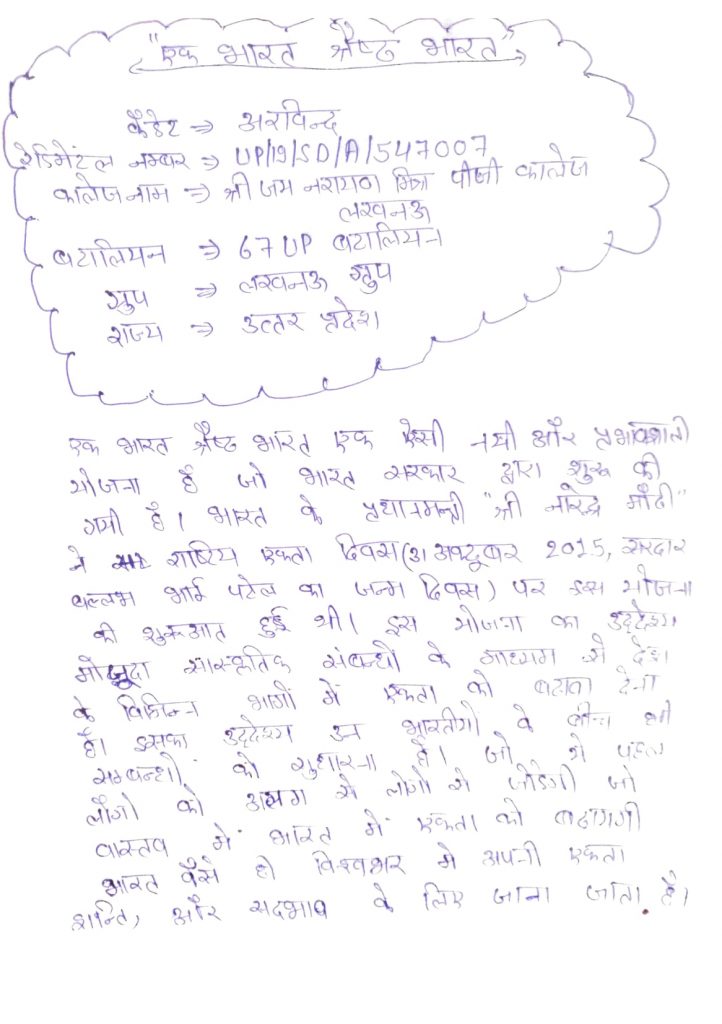 "एक भारत श्रैष्ठ भारत"
कैडेट ⇒ अरविन्द
रेजिमेंटल नम्बर ⇒ UP/19/SD/A/547007
कालेज नाम ⇒ श्री जय नरायण मिश्रा पीजी कालेज
लखनऊ
बटालियन ⇒ 67 UP बटालियन
ग्रुप ⇒ लखनऊ ग्रुप
राज्य ⇒ उत्तर प्रदेश
एक भारत श्रैष्ठ भारत एक ऐसी नयी और प्रभावशाली
योजना है जो भारत सरकार द्वारा शुरू की
गयी है। भारत के प्रधानमन्त्री "श्री नरेन्द्र मौदी"
ने राष्टिय एकता दिवस (31 अक्टूबार 2015, सरदार
बल्लभ भाई पटेल का जन्म दिवस) पर इस योजना
की शुरूआत हुई थी। इस योजना का उद्देश्य
मौजुदा सास्कृतिक संबन्धो के माध्यम से देश
के विभिन्न भागों में एकता को बढावा देना
है। इसका उद्देश्य उन भारतीयो के बीच भी
सम्बन्धो को सुधारना है। जो से पहल
लौगो को अलग से लोगो से जोडेगी जो
वास्तव में भारत में एकता को बढायगी
भारत वैसे ही विश्वभर मे अपनी एकता
शान्ति, और सदभाव के लिए जाना जाता है।